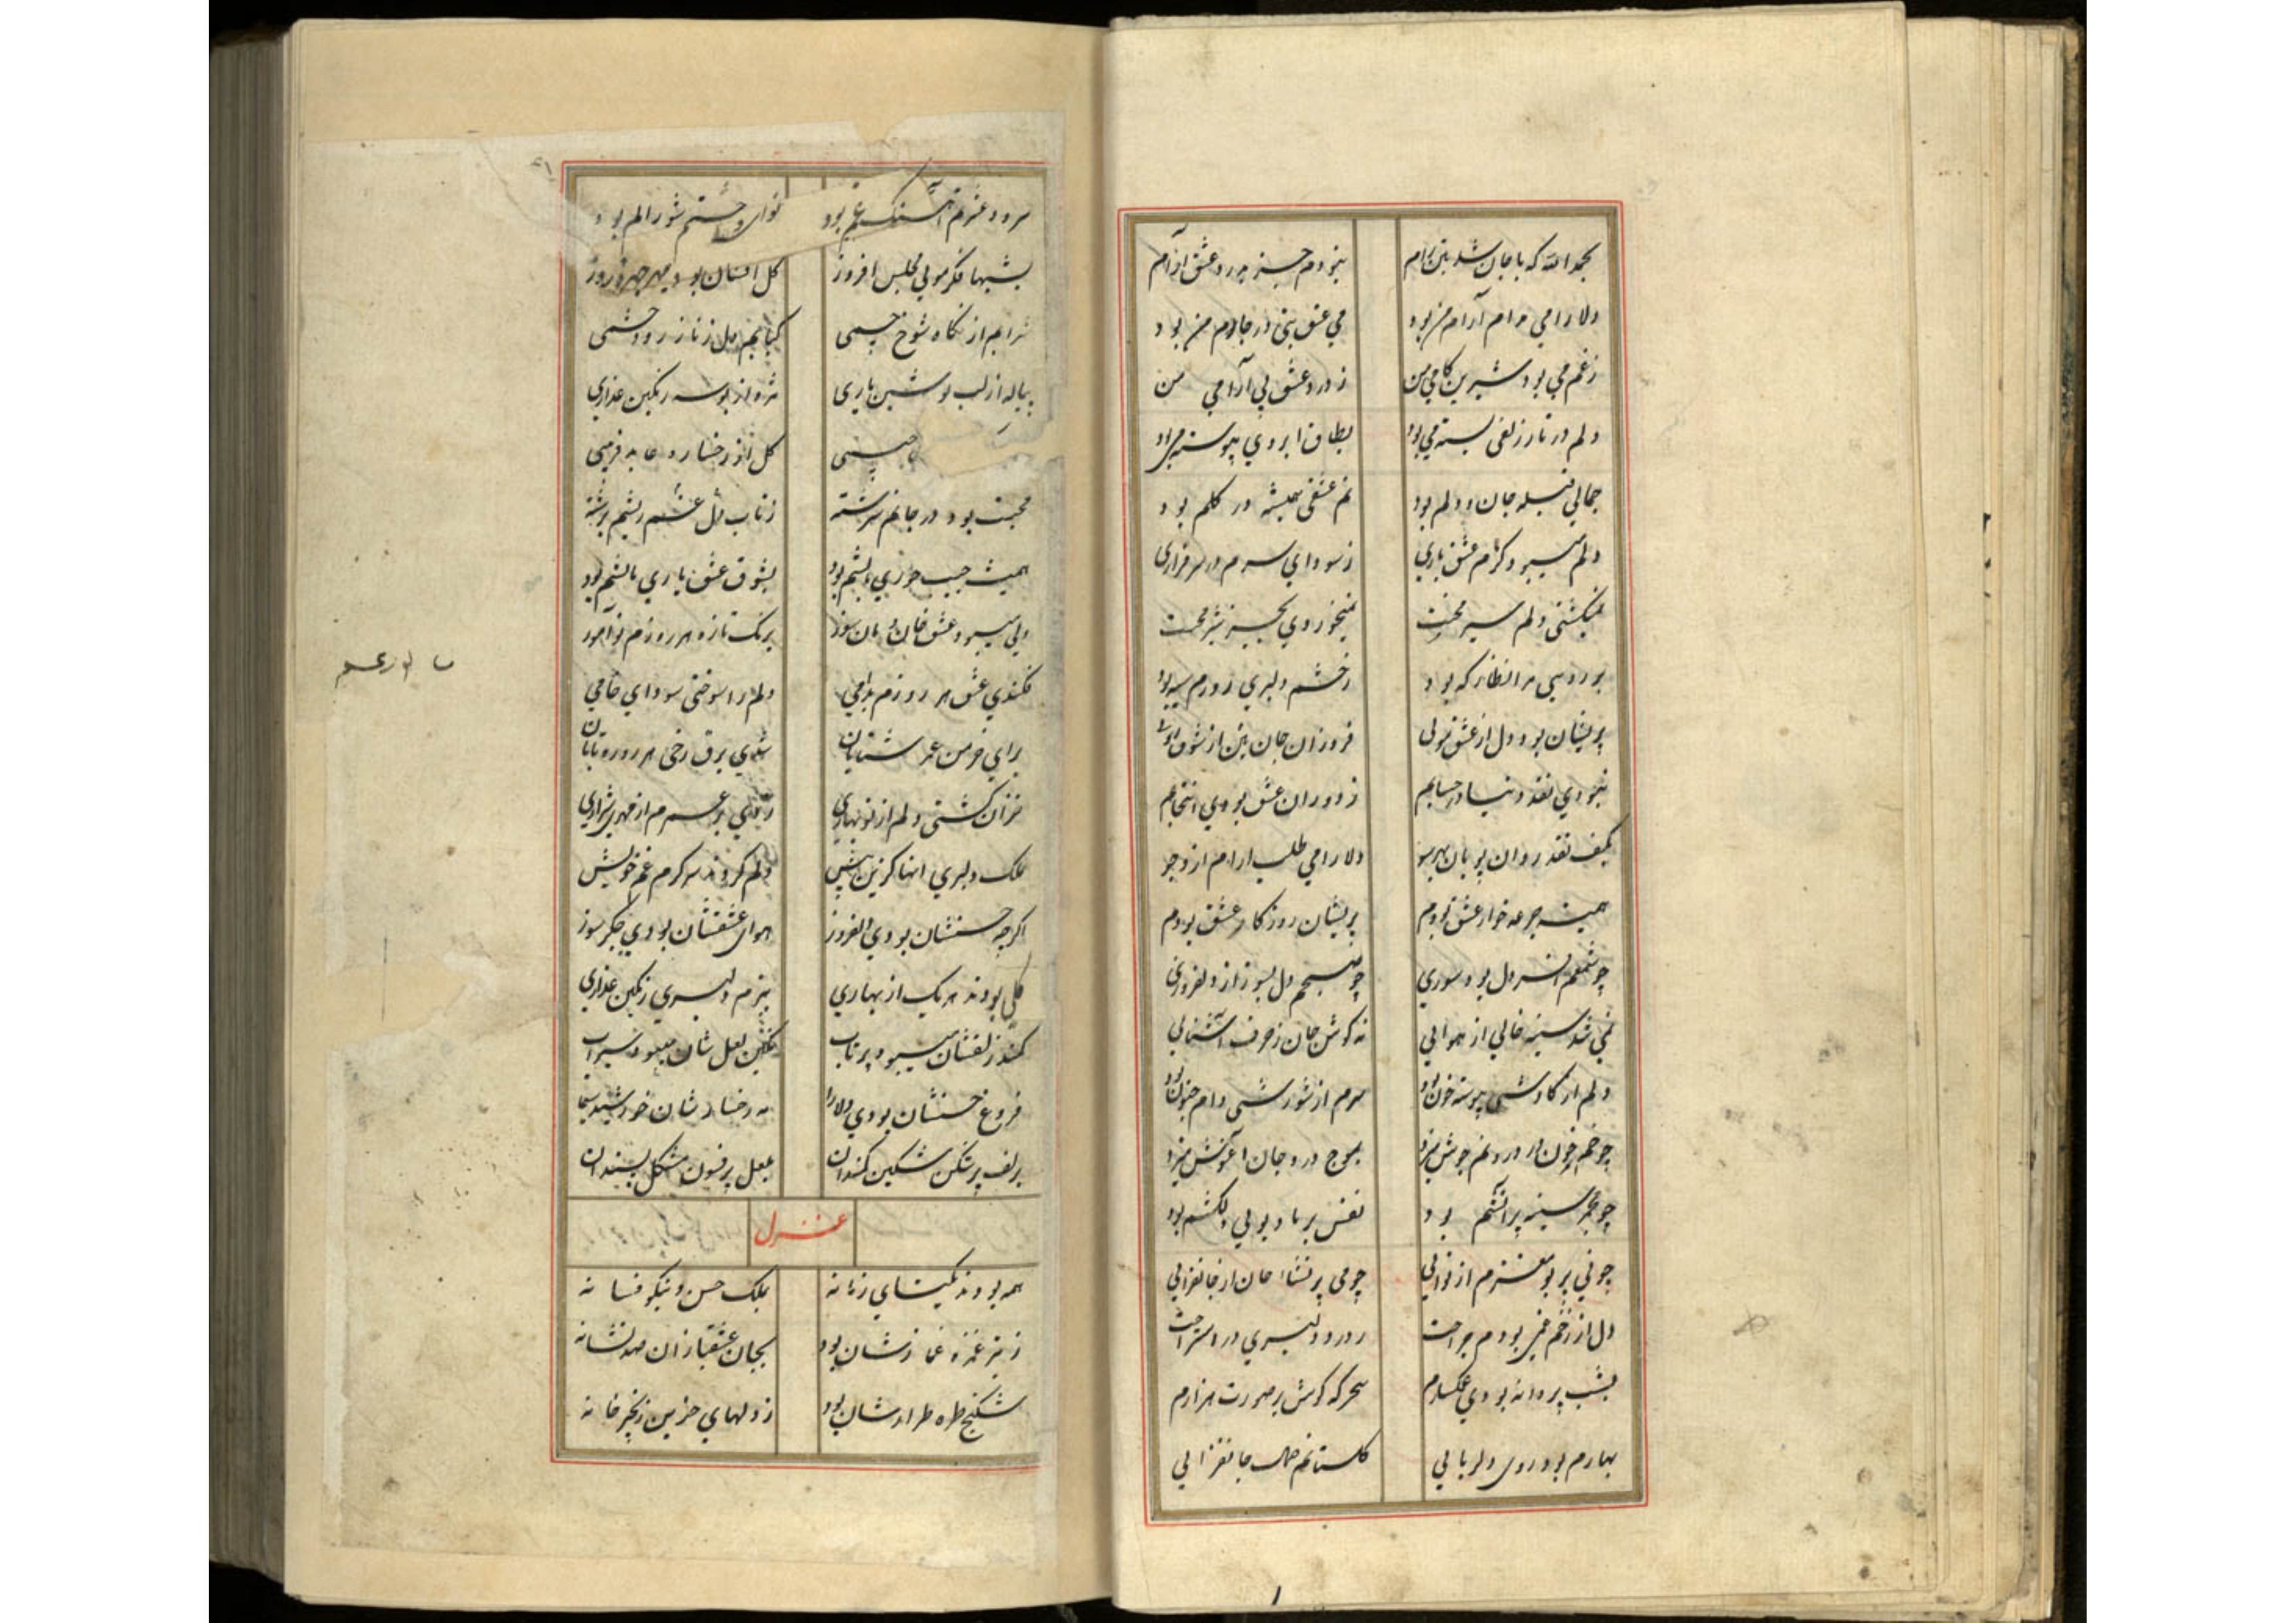 بحمدالله که با جان شد بتن رام نبودم جز بدرد عشق آرام
دلارامی مرام آرام من بود می عشق بتی در جام من بود
ز غم می بود شیرین کامی من ز درد عشق بی آرامی من
دلم در تار زلفی بسته می بود بطاق ابروی پیوسته می بود
جمالی قبله جان و دلم بود غم عشقی همیشه در گلم بود
دلم میبرد هر دم عشق یاری ز سودای سرم در سرفرازی
نمیگشتی دلم سیر محبت نمیخوردی بجز تیر محبت
بورویی مرا نظاره که بود ز خشم دلبری روزم سیه بود
پریشان بود دل از عشق مویی فروزان جان من از شوق رویی
نبودی نقد دنیا در حسابم ز دوران عشق بودی انتخابم
بکف نقد روان پویان بهرسو دلارامی طلب آرام ازو جو
همیشه جرعه خوار عشق بودم پریشان روزگار عشق بودم
چو شمعم دل بود سوری چو صبحم دل بسوز از دلفروزی
نمی شد سینه خالی از هوایی نه گوش جان ز حرف آشنایی
دلم از کاوشی پیوسته خون بود سرم از شورشی دام جنون بود
چو خم خون در درونم جوش میزد بموج درد جان آغوش میزد
چو مجمر سینه پر آتشم بود نفس بر باد بویی دلکشم بود
چو نی پر بود مغزم از نوایی چو می پر نشاء جان از جانفزایی
دل از زخم غمی بودم جراحت ز درد دلبری در استراحت
بشب پروانه بودی غمگسارم سحرگه گوش بر صوت هزارم
بهارم بود روی دلربایی گلستانم جمال جانفزایی
سرود عشرتم آهنگ غم بود نوای وحشتم شور الم بود
بشبها فکر مویی مجلس افروز گل افشان بود مهر چهره روز
شرابم از نگاه شوخ چشمی کبابم دل ز ناز زود خشمی
پیاله از لب نوشین یاری مزه از بوسه رنگین عذاری
جبینی گل از رخساره عابد فریبی
محبت بود در جانم سرشته ز تاب دل غم ریشم برشته
همیشه جیب حوری بالشم بود بشوق عشق یاری نالشم بود
ولی میبرد عشق خان و مان سوز برنگ تازه هر روزم نوآموز
فکندی عشق هر روزم بدامی دلم را سوختی سودای خامی
برای خرمن عمر شتابان شدی برق رخی هر روزه تابان
خزان گشتی دلم از نوبهاری زدی بر سرم از مهری شراری
بملک دلبری انها کزین پیش دلم کردند سرگرم غم خویش
اگرچه حسنشان بودی دلفروز هوای عشقشان بودی جگرسوز
گلی بودند هریک از بهاری ببزم دلبری رنگین عذاری
کمند زلفشان میبود پرتاب نگین لعل شان میبود سیراب
فروغ حسنشان بودی دلارا مه رخسارشان خورشید سیما
بزلف پرشکن مشکین کمندان بلعل پر فسون مشکل پسندان
غزل
همه بودند یکتای زمانه بملک حسن و نیکو فسانه
ز تیر غمزه غمازشان بود بجان عشقبازان صد نشانه
شکنج طره طرارشان بود ز دلهای حزین زنجیر خانه